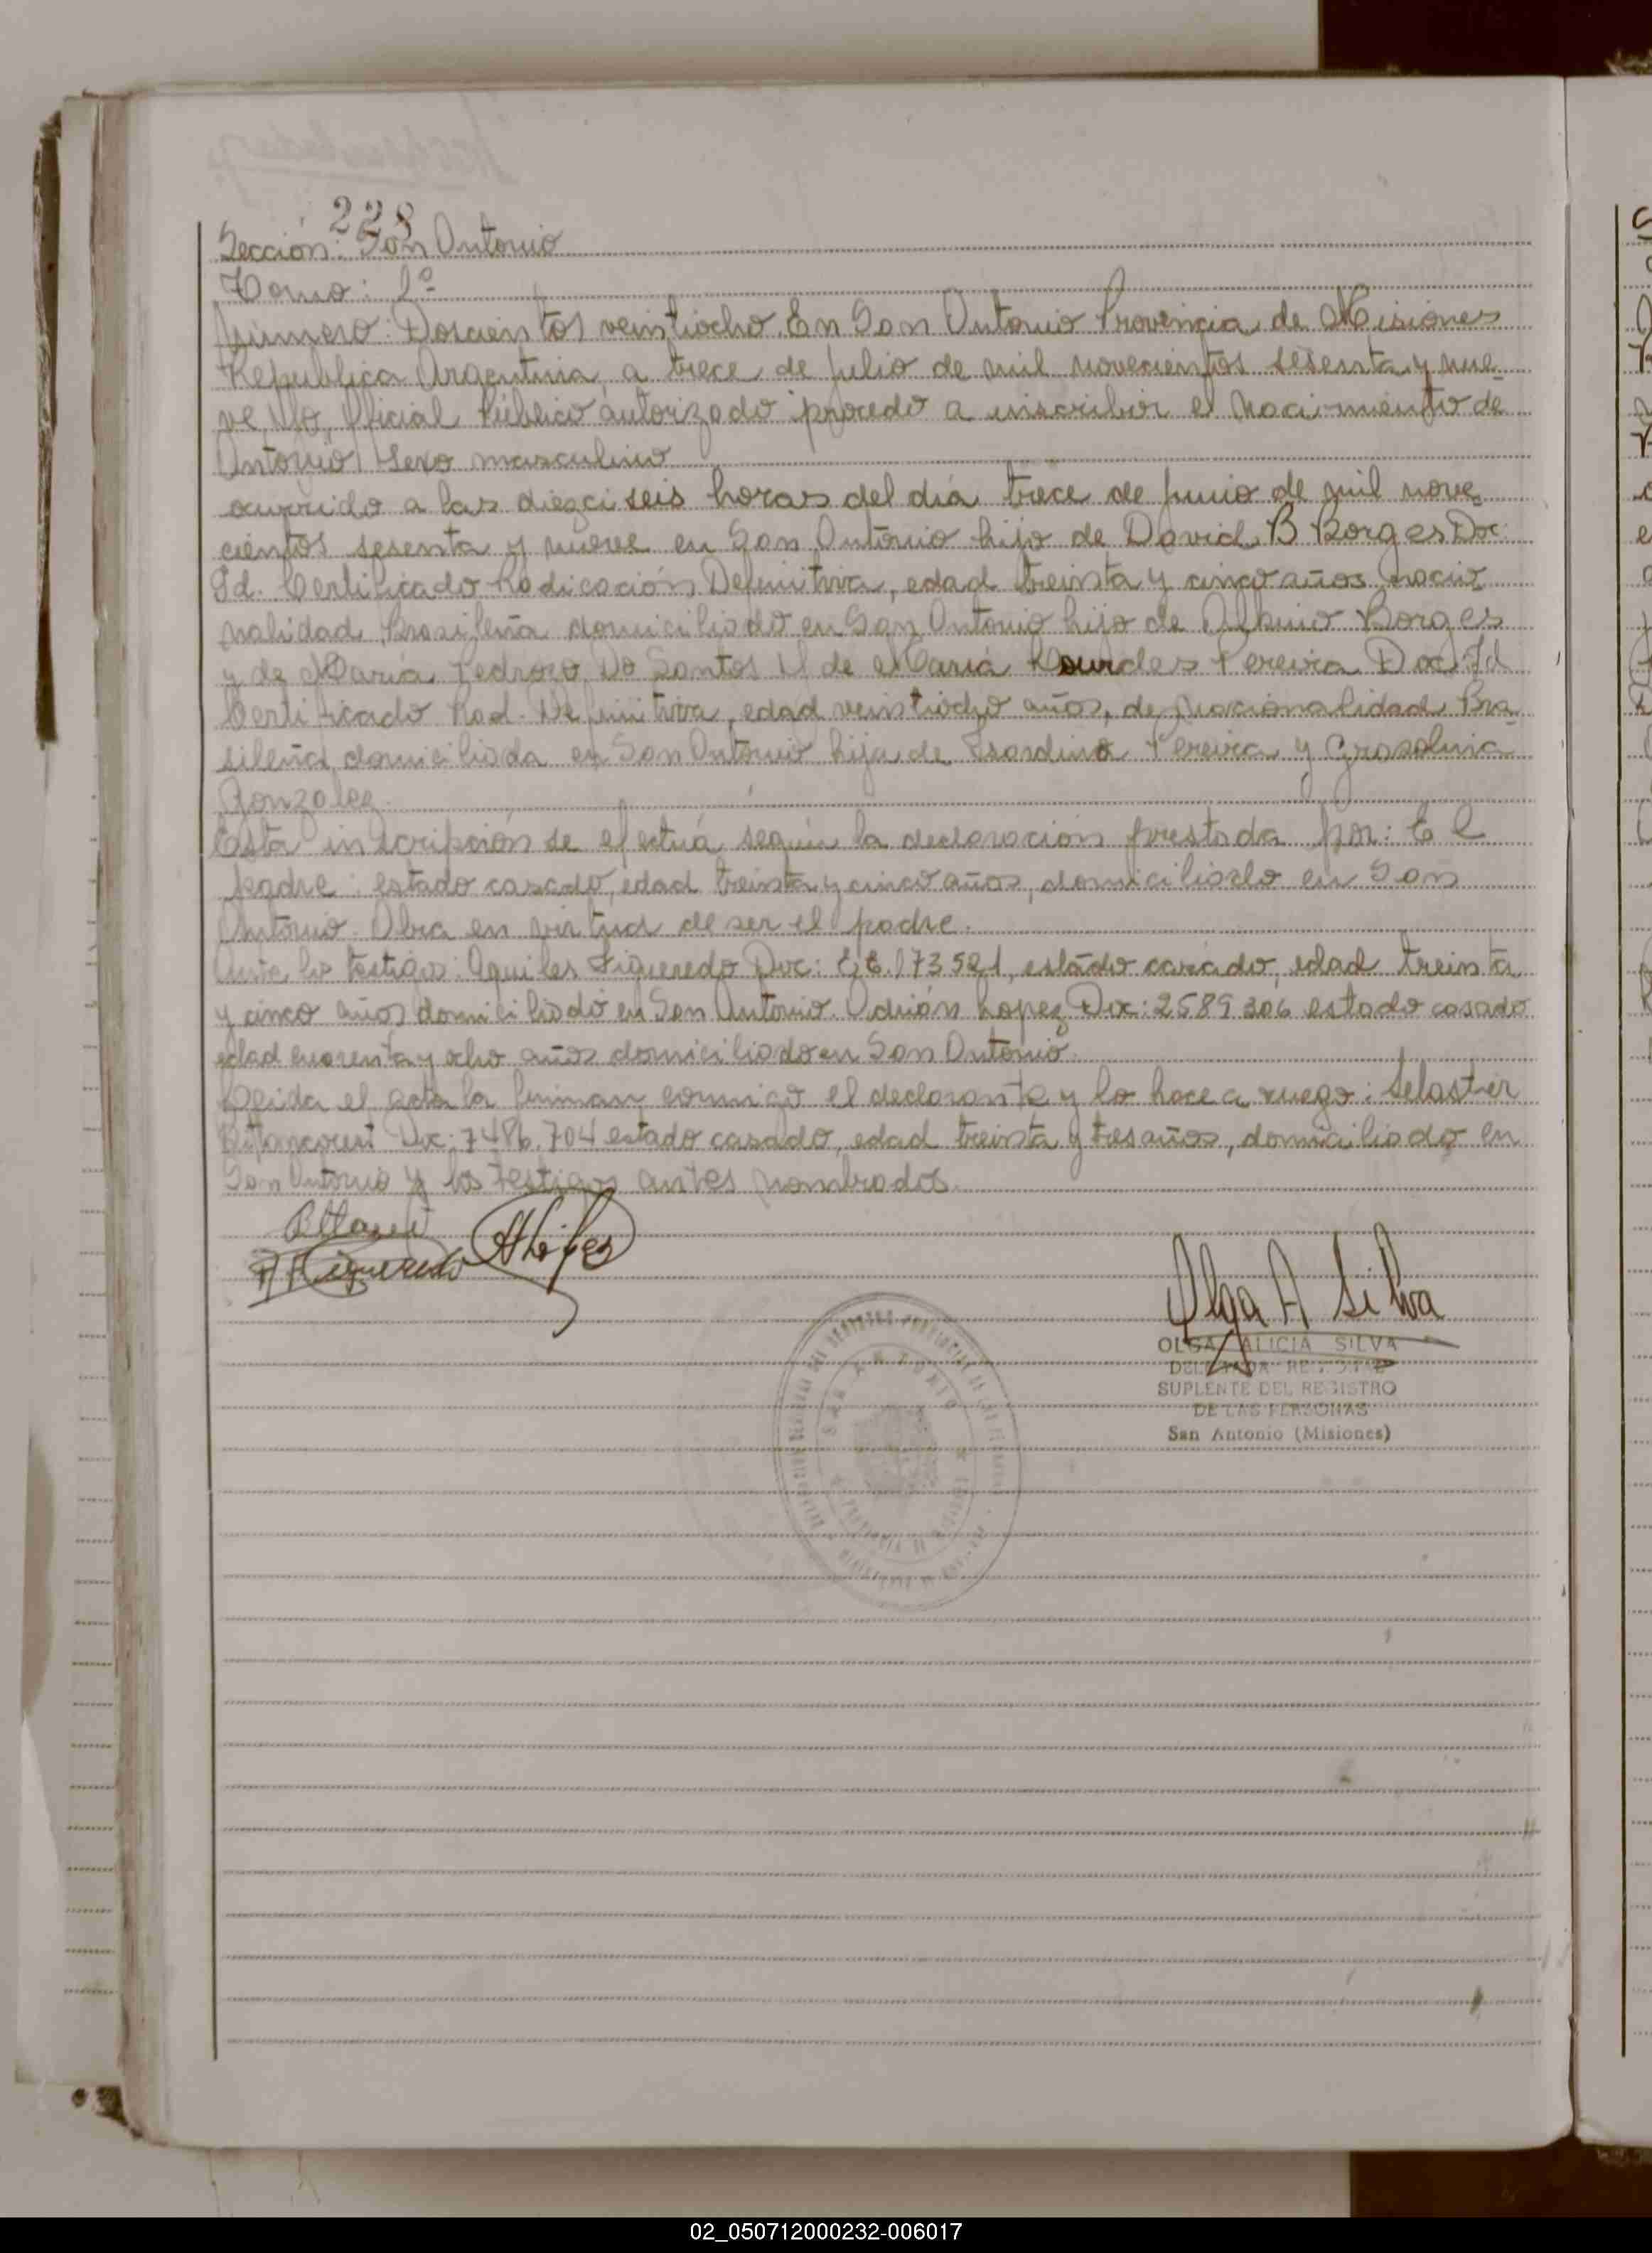 228
Sección: San Antonio
Tomo: 1º
Número: Doscientos veintiocho. En San Antonio Provincia de Misiones
Republica Argentina, a trece de julio de mil novecientos sesenta y nue-
ve, Yo, Oficial Público autorizado procedo a inscribir el nacimiento de
Antonio sexo masculino
ocurrido a las dieziseis horas del día trece de junio de mil nove
cientos sesenta y nueve en San Antonio hijo de David B Borges Doc:
Id. Certificado Radicación Definitiva, edad treinta y cinco años nacio
nalidad Brasileña domiciliado en San Antonio hijo de Albino Borges
y de María Pedrozo Do Santos Y de María Lourdes Pereira Doc. Id
Certificado Rad. Definitiva, edad veintiocho años, de nacionalidad Bra-
sileña domiciliada en San Antonio hija de Pereira y
Gonzalez
Esta inscripción se efectuá según la declaración prestada por: El
padre: estado casado, edad treinta y cinco años, domiciliado en San
Antonio. Obra en virtud de ser el padre.
Ante los testigos: Aquiles Figueredo Doc: estado casado, edad treinta
y cinco años domiciliado en San Antonio. Adrián Lopez Doc: 2589306 estado casado
edad cuarenta y ocho años domiciliado en San Antonio.
Leida el acta la firman conmigo el declarante y lo hace a ruego:
Doc: 7486.704 estado casado, edad treinta y tres años, domiciliado en
San Antonio y los testigos antes nombrados.
A Figueredo
Olga A Silva
OLGA ALICIA SILVA
SUPLENTE DEL REGISTRO
DE LAS PERSONAS
San Antonio (Misiones)
02_050712000232-006017